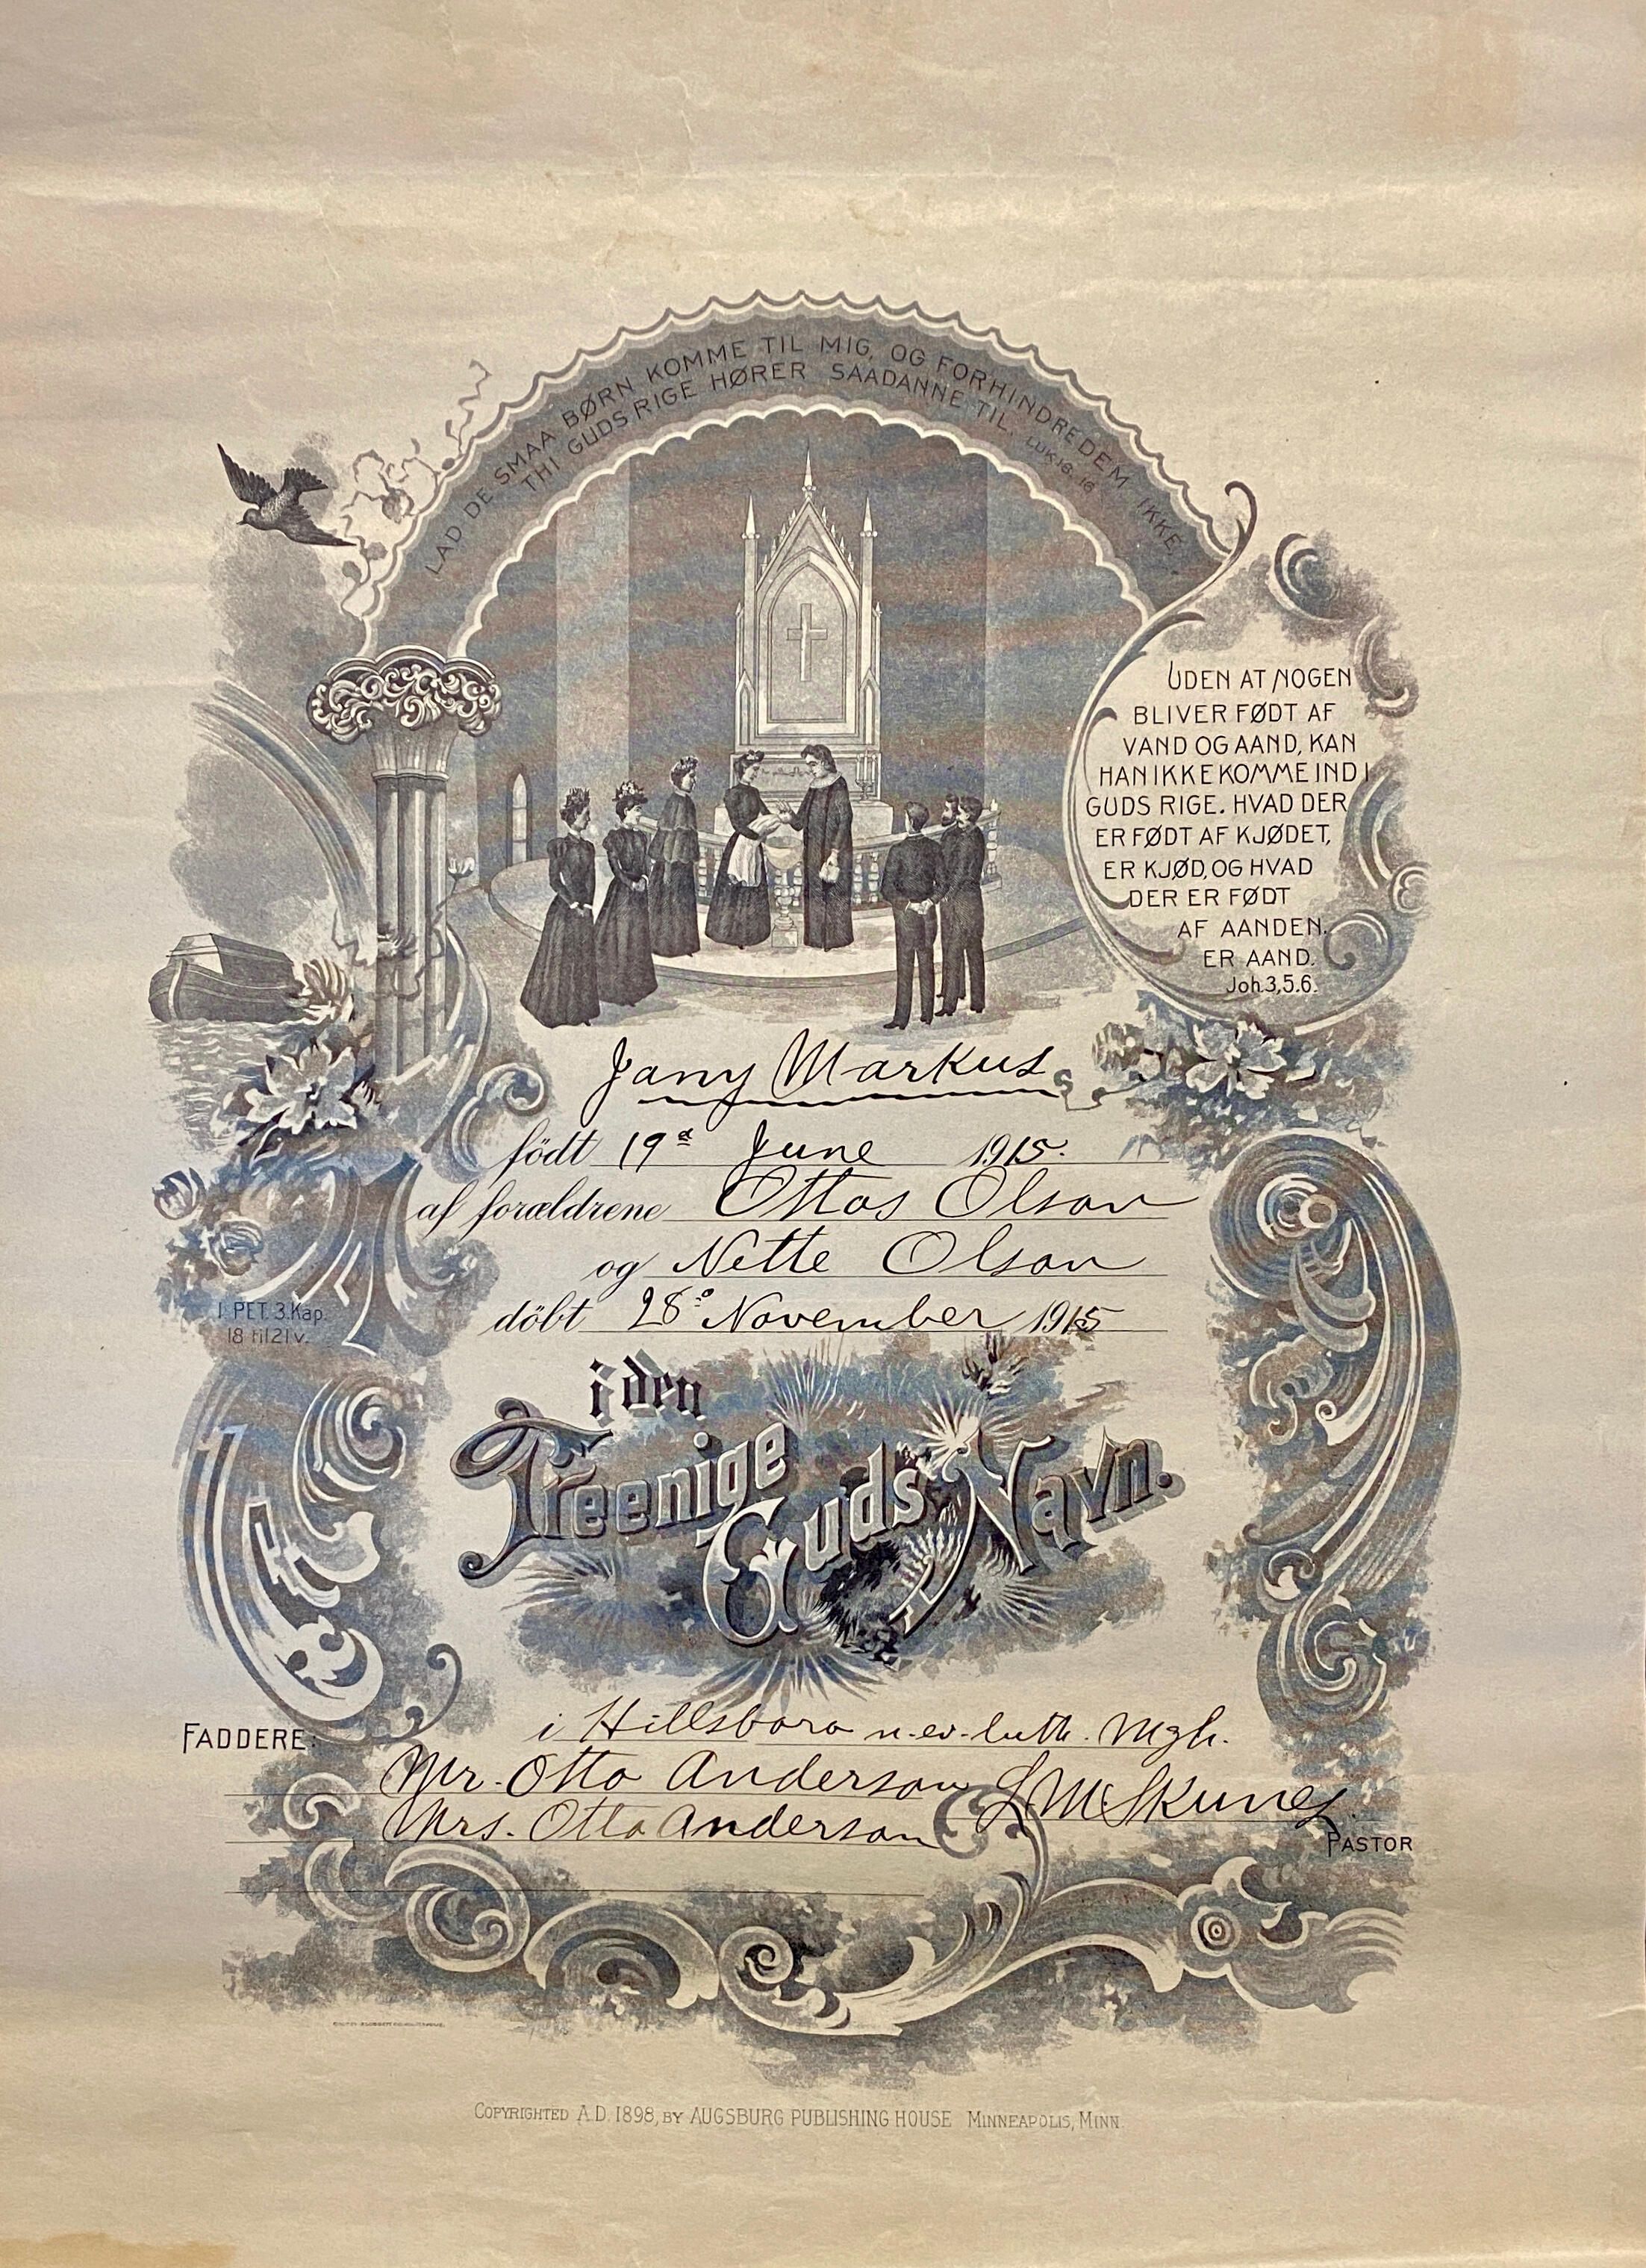 LAD DE SMAA BØRN KOMME TIL MIG, OG FORHINDRE DEM IKKE,
THI GUDS RIGE HØRER SAADANNE TIL. LUK 18, 16
UDEN AT NOGEN
BLIVER FØDT AF
VAND OG AAND, KAN
HAN IKKE KOMME IND I
GUDS RIGE. HVAD DER
ER FØDT AF KJØDET,
ER KJØD, OG HVAD
DER ER FØDT
AF AANDEN,
ER AAND.
Joh. 3, 5. 6.
Jany Markus
födt 19d June 1915.
af forældrene Ottos Olson
og Nette Olson
döbt 28de November 1915
1. PET. 3. Kap.
18 til 21 v.
i den
Treenige
Guds Navn.
i Hillsboro n-ev-luth. Mgh.
FADDERE:
Mr. Otto Anderson
Mrs. Otto Anderson
PASTOR
COPYRIGHTED A.D. 1898, BY AUGSBURG PUBLISHING HOUSE MINNEAPOLIS, MINN.